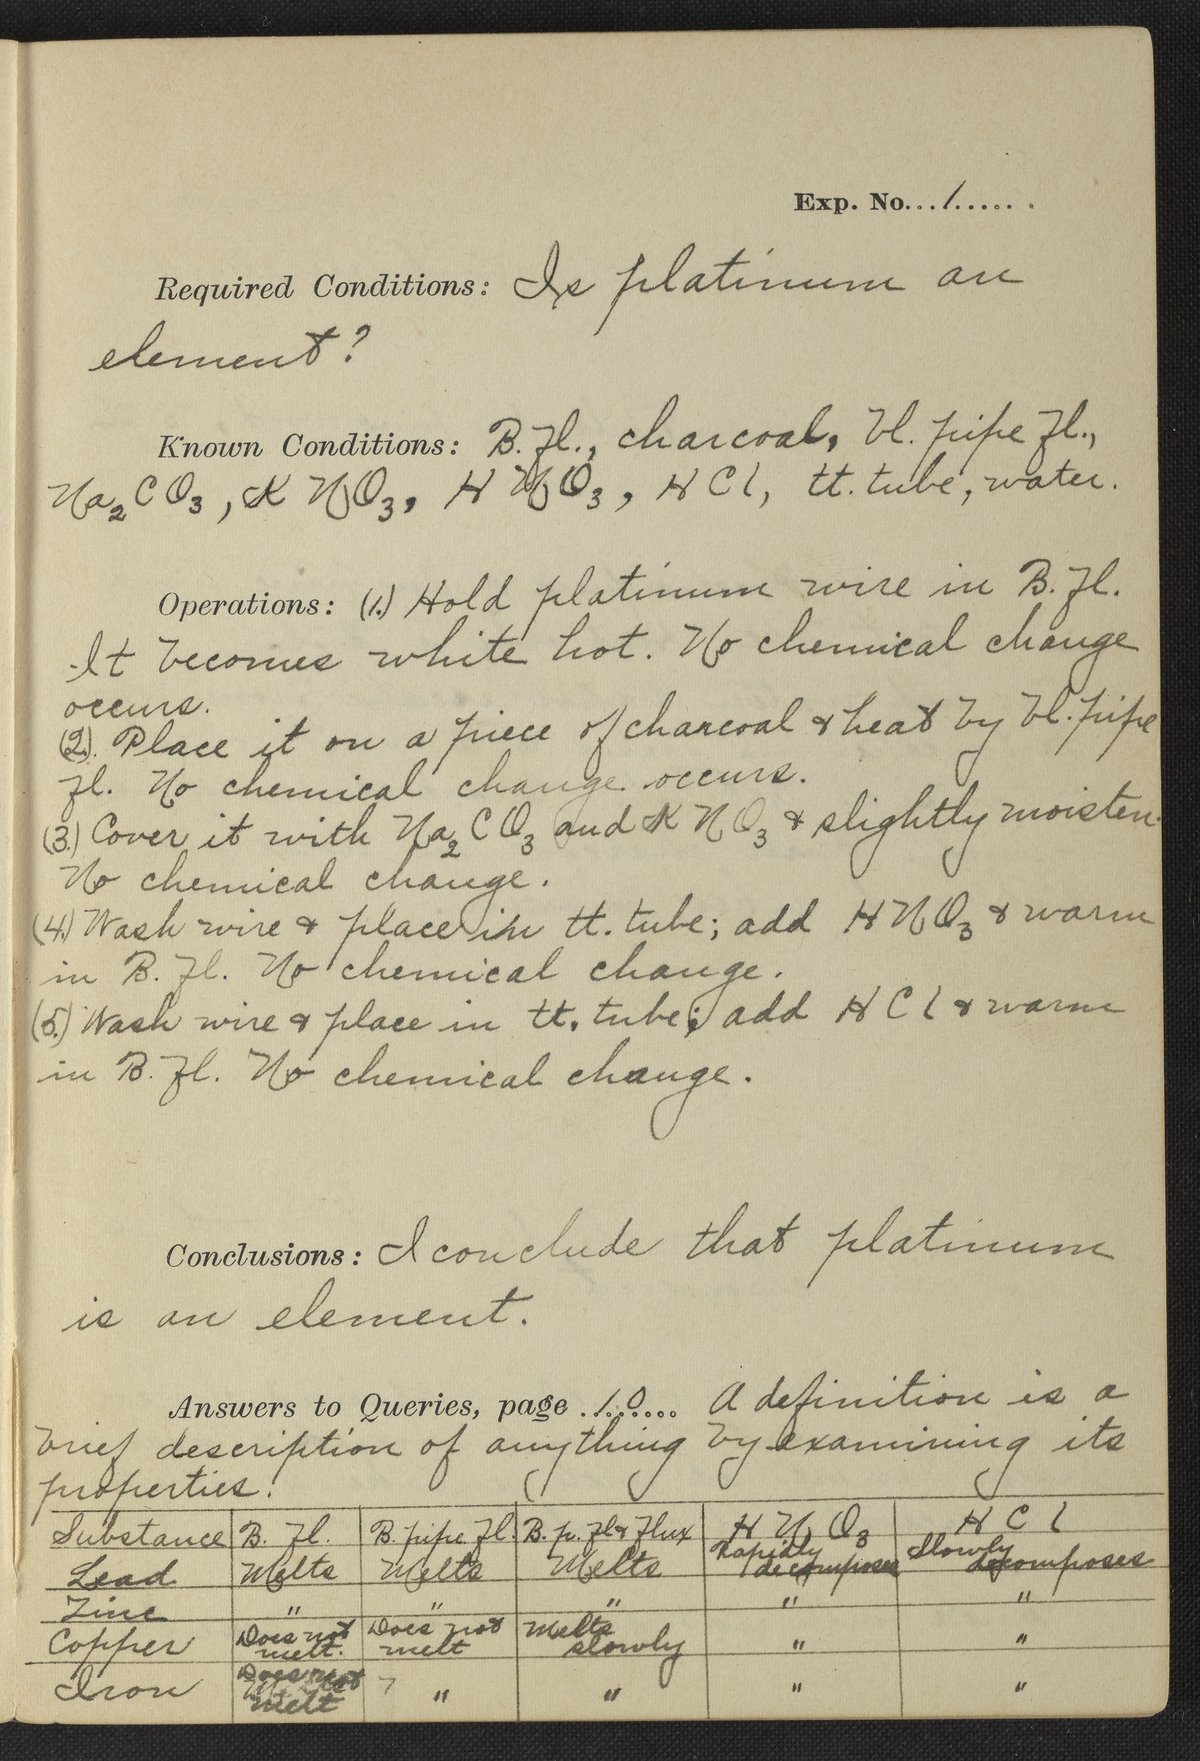 Exp. No...1......
Required Conditions: Is platinum an
element?
Known Conditions: B. Fl., charcoal, bl. pipe fl.,
Na2CO3, KNO3, HNO3, HCl, tt. tube, water.
Operations: (1.) Hold platinum wire in B. Fl.
It becomes white hot. No chemical change
occurs.
(2.) Place it on a piece of charcoal & heat by bl. pipe
fl. No chemical change occurs.
(3.) Cover it with Na2CO3 and KNO3 & slightly moisten.
No chemical change.
(4.) Wash wire & place in tt. tube; add HNO3 & warm
in B. Fl. No chemical change.
(5.) Wash wire & place in tt. tube; add HCl & warm
in B. Fl. No chemical change.
Conclusions: I conclude that platinum
is an element.
Answers to Queries, page .10.... A definition is a
brief description of anything by examining its
properties.
Substance B. Fl. B. pipe Fl. B. p. Fl & Flux HNO3 HCl
Lead Melts Melts Melts Rapidly decomposes Slowly decomposes
Zinc " " " " "
Copper Does not melt. Does not melt Melts slowly " "
Iron Does not melt " " " "